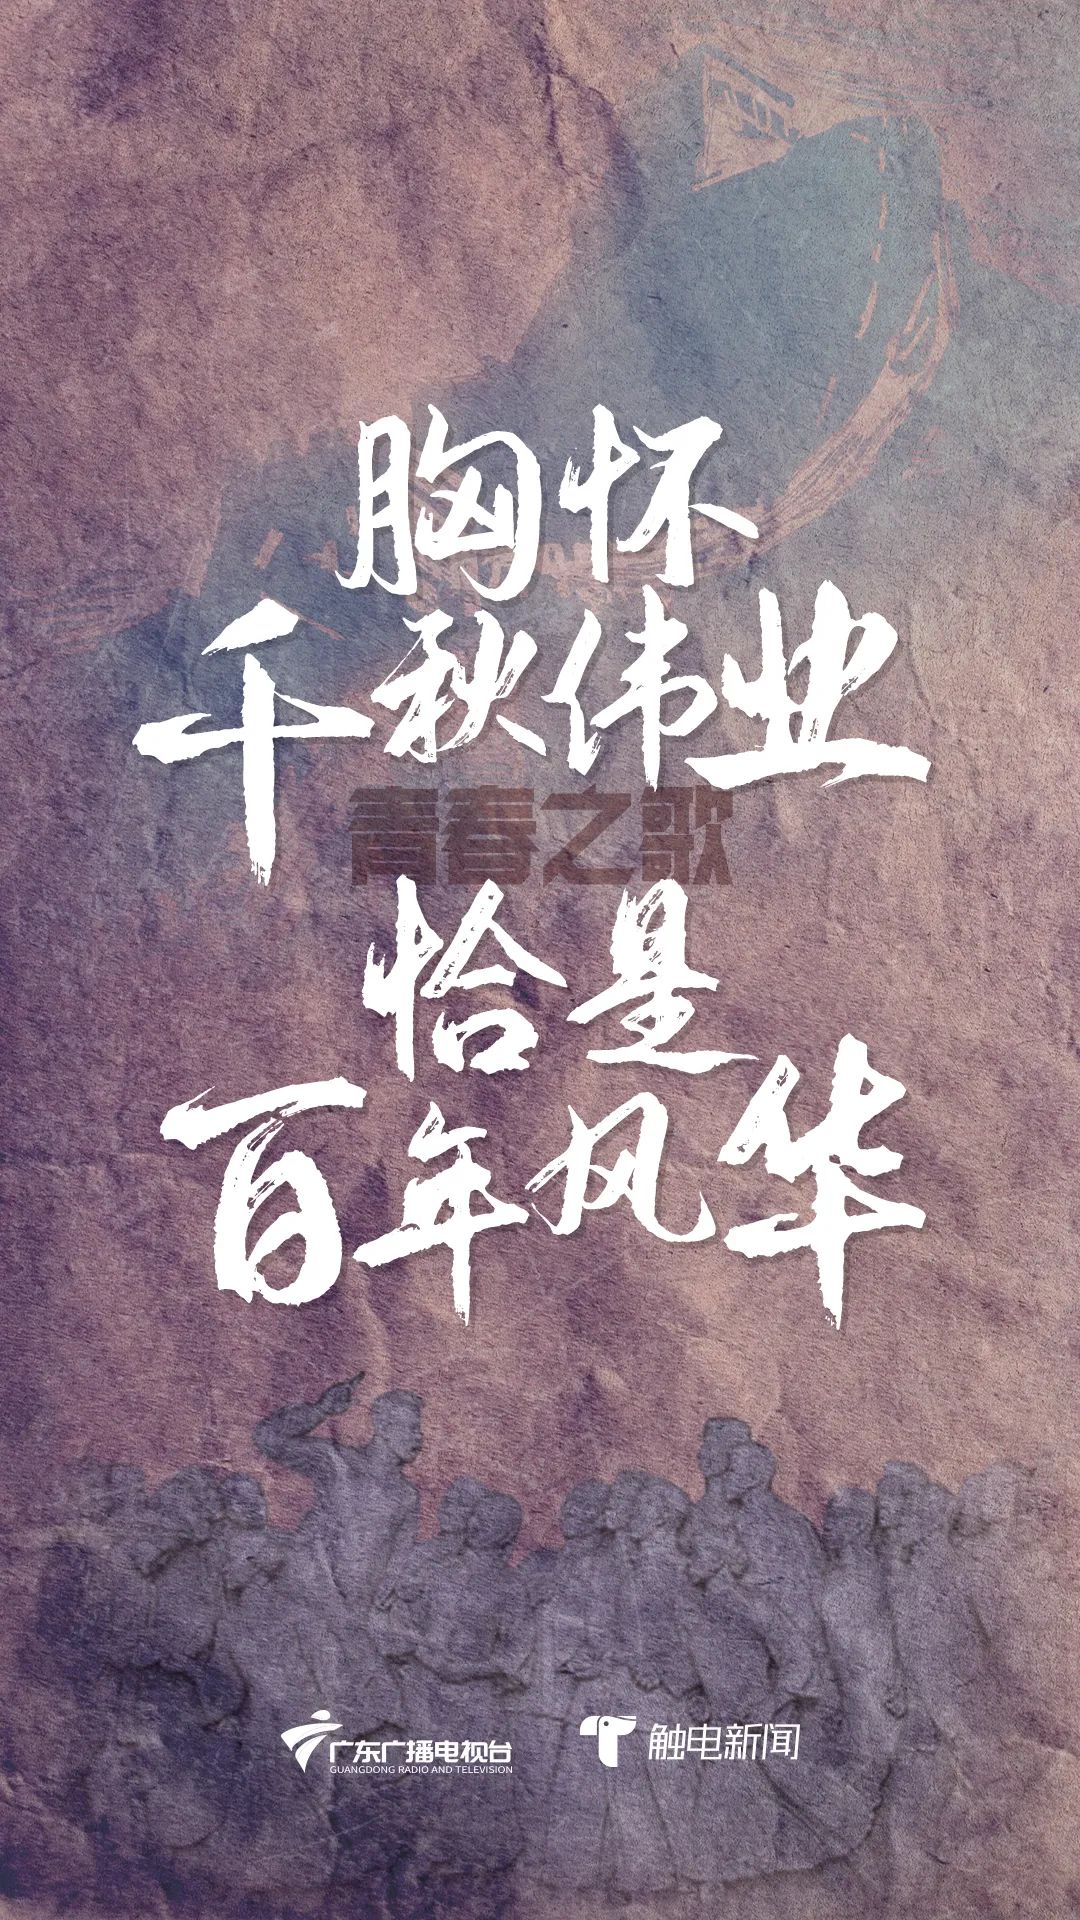 胸怀
千秋伟业
青春之歌
恰是
百年风华
广东广播电视台
GUANGDONG RADIO AND TELEVISION
触电新闻